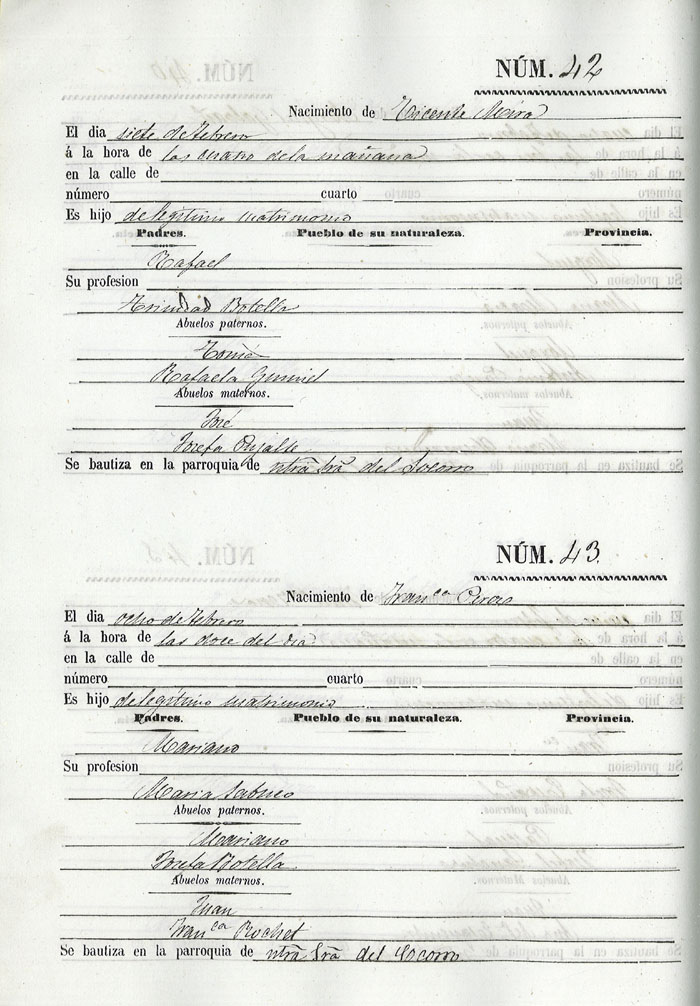 NÚM. 42
Nacimiento de Vicente Mira
El dia siete de Febrero
á la hora de las cuatro de la mañana
en la calle de
número cuarto
Es hijo de legítimo matrimonio
Padres. Pueblo de su naturaleza. Provincia.
Rafael
Su profesion
Trinidad Botella
Abuelos paternos.
Tomás
Rafaela Gumiel
Abuelos maternos.
José
Josefa Pujalte
Se bautiza en la parroquia de Ntrã Srã del Socorro
NÚM. 43.
Nacimiento de Franca Perez
El dia ocho de Febrero
á la hora de las doce del dia
en la calle de
número cuarto
Es hijo de legítimo matrimonio
Padres. Pueblo de su naturaleza. Provincia.
Mariano
Su profesion
Maria
Abuelos paternos.
Mariano
Josefa Botella
Abuelos maternos.
Juan
Franca
Se bautiza en la parroquia de Ntrã Srã del Socorro